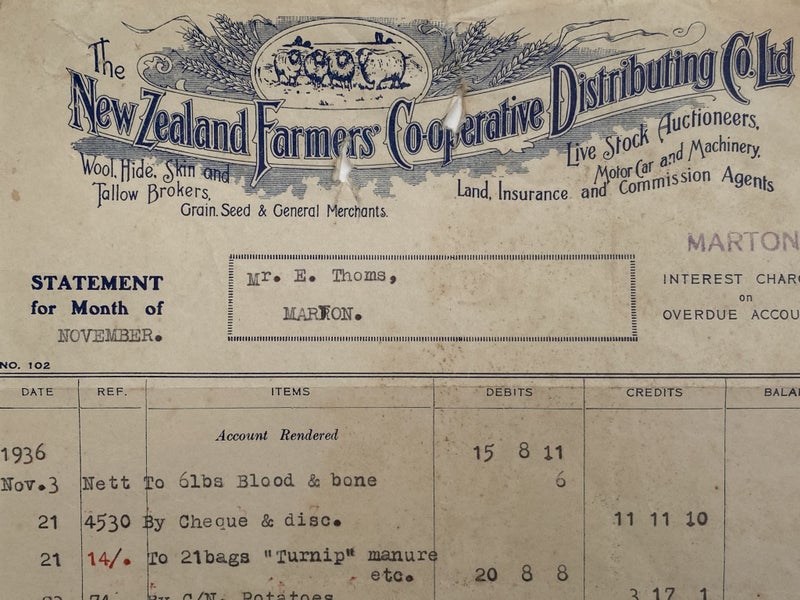 The
New Zealand Farmers' Co-operative Distributing Co. Ltd
Wool, Hide, Skin and
Tallow Brokers,
Grain, Seed & General Merchants.
Live Stock Auctioneers,
Motor Car and Machinery,
Land, Insurance and Commission Agents
MARTON
STATEMENT
for Month of
NOVEMBER.
Mr. E. Thoms,
MARTON.
INTEREST
on
OVERDUE
NO. 102
DATE REF. ITEMS DEBITS CREDITS
Account Rendered
1936 15 8 11
Nov.3 Nett To 6lbs Blood & bone 6
21 4530 By Cheque & disc. 11 11 10
21 14/. To 21bags "Turnip" manure
etc. 20 8 8
By C/N. Potatoes 3 17 1